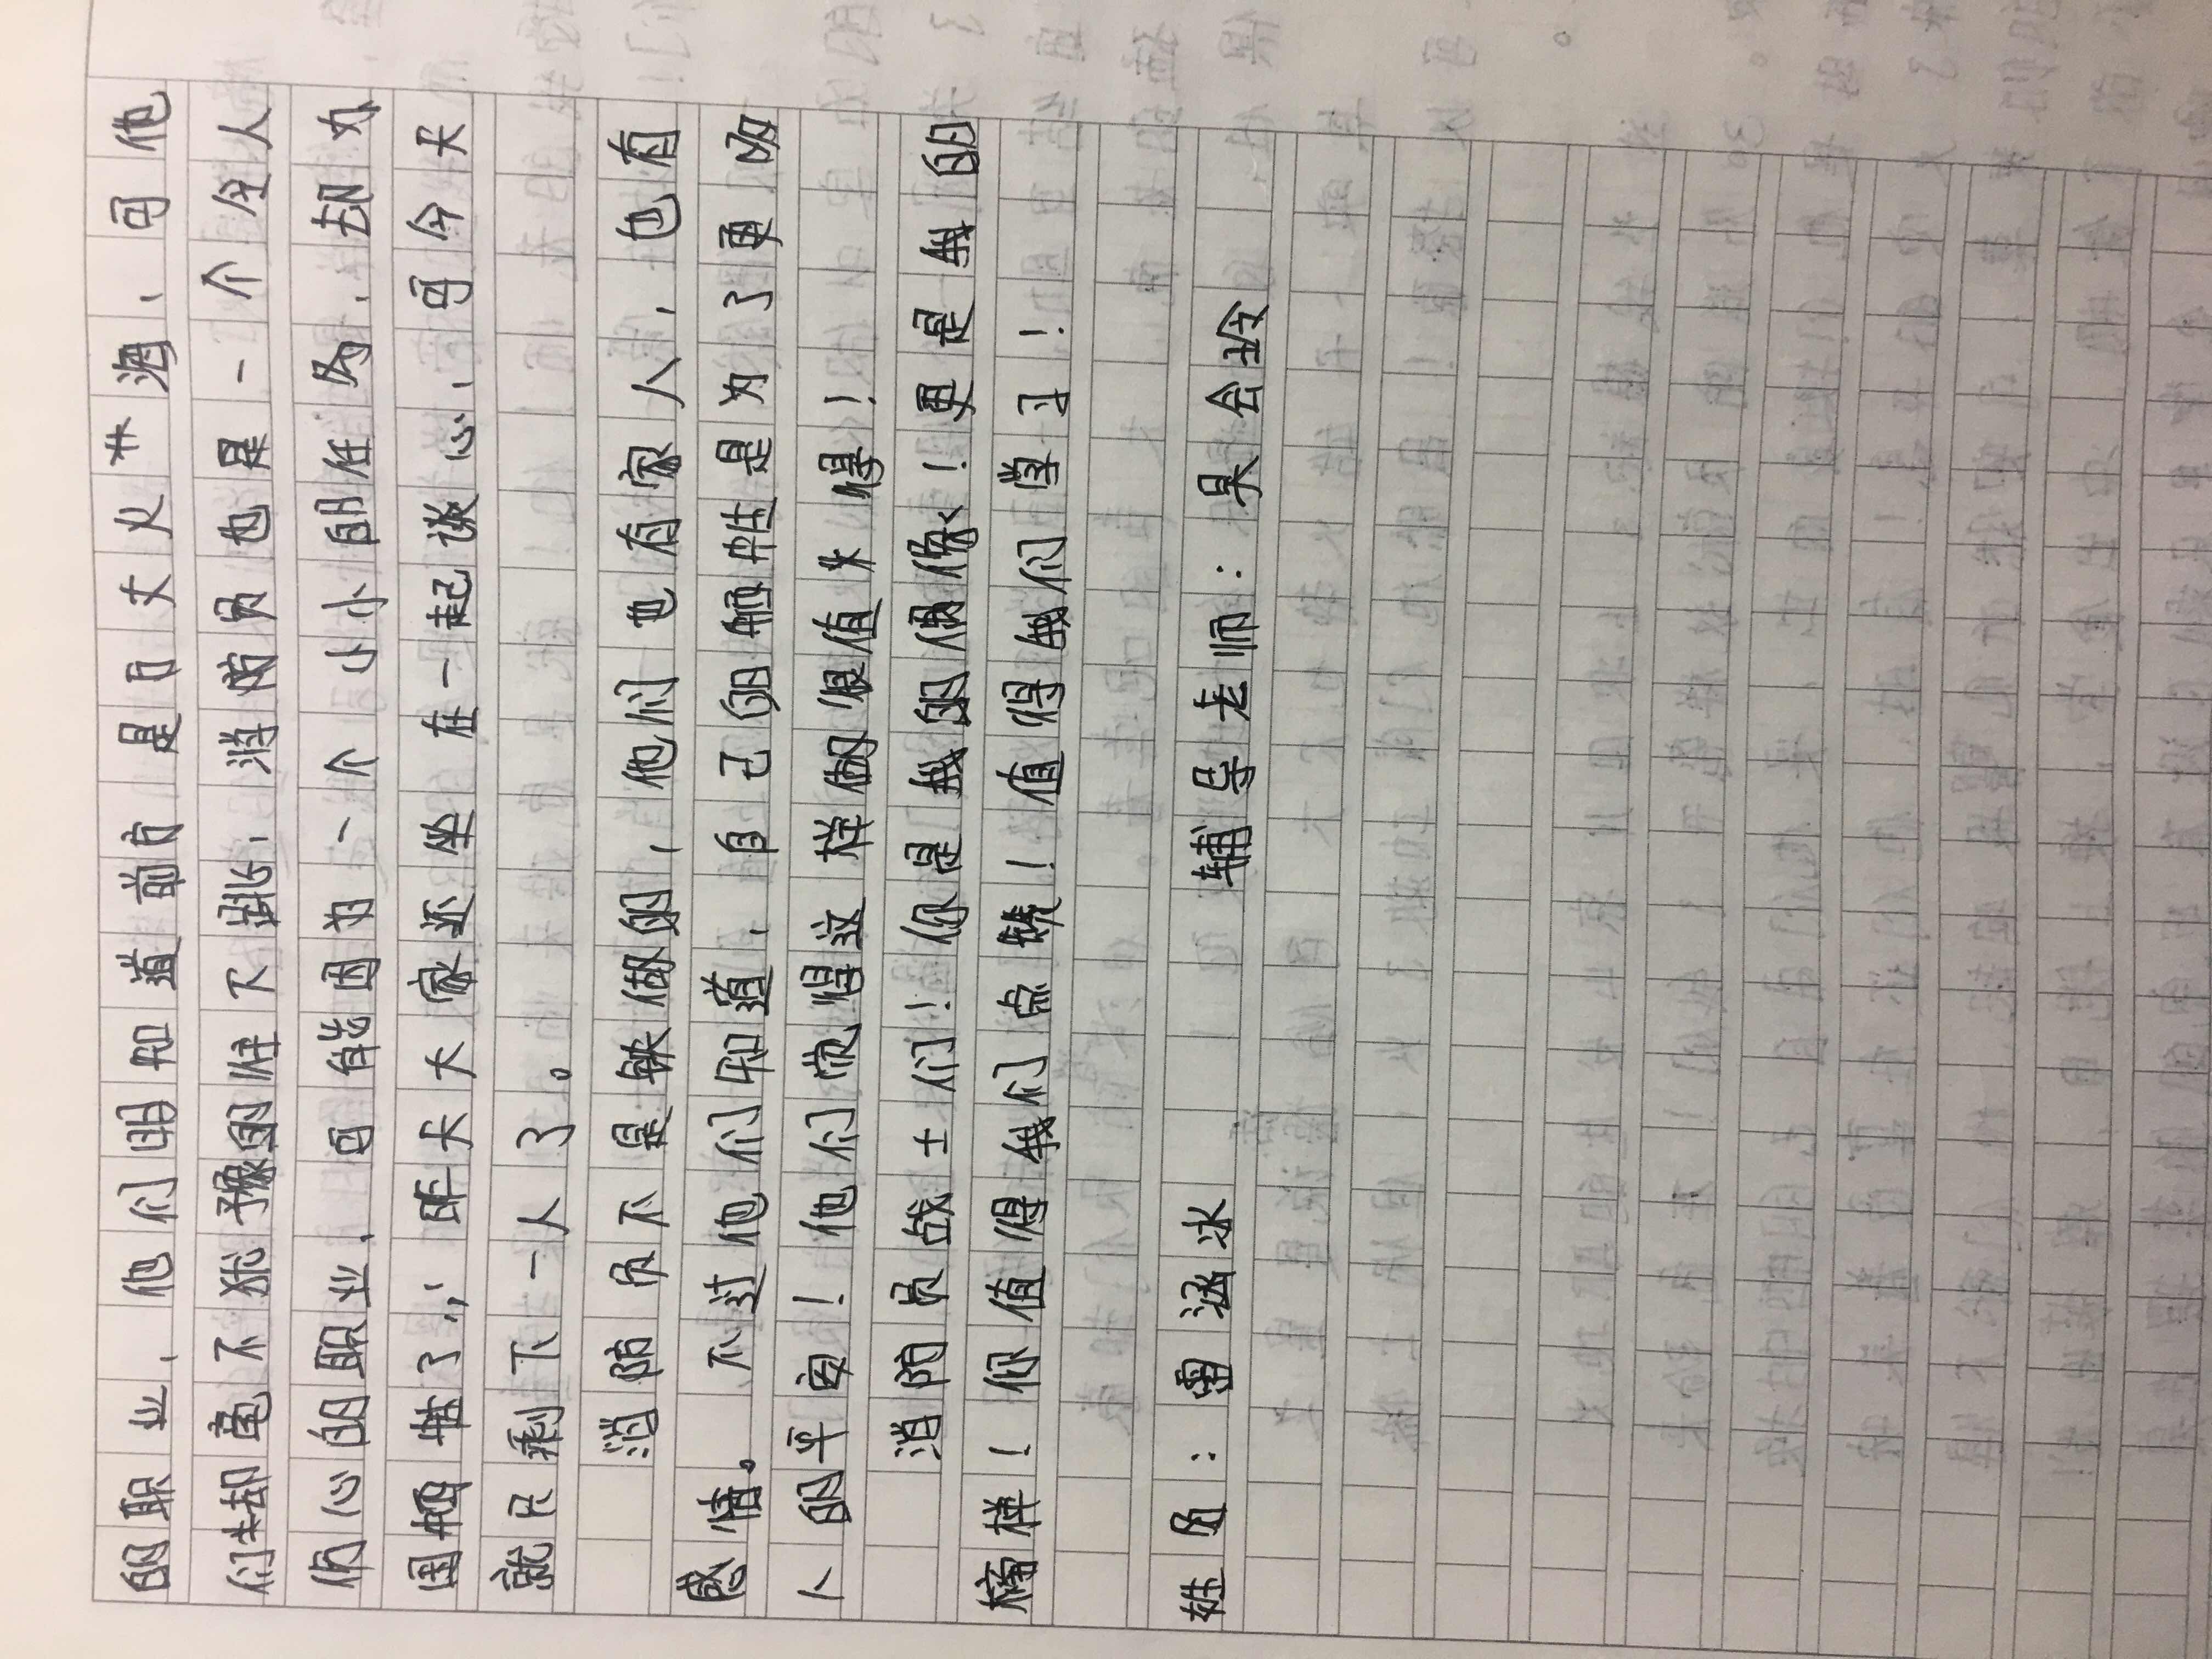 的职业，他们明知道前方是万丈火海，可他
们却毫不犹豫的往下跳，消防员也是一个令人
伤心的职业，可能因为一个小小的任务，却为
国牺牲了，昨天大家还坐在一起谈心，可今天
就只剩下一人了。
消防员不是铁做的，他们也有家人，也有
感情。不过他们知道，自己的牺牲是为了更多
人的平安！他们觉得这样做很值得！
消防员战士们！你是我的偶像！更是我的
榜样！你值得我们点赞！值得我们学习！
姓名：雷涵冰 辅导老师：吴会玲